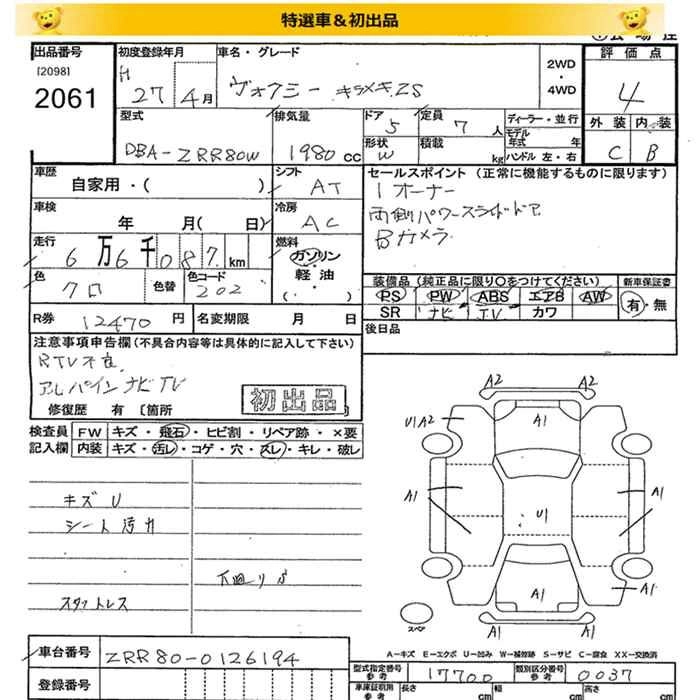 特選車&初出品
出品番号
[2098]
2061
初度登録年月
H27年4月
車名・グレード
ヴォクシー キラメキZS
2WD
・
4WD
評価点
4
外装 内装
C B
型式
DBA-ZRR80W
排気量
1980cc
ドア
5
定員
7人
形状
W
積載
kg
ディーラー・並行
モデル年式 年
ハンドル 左・右
車歴
自家用・( )
シフト
AT
車検
年 月( 日)
冷房
AC
走行
6万6千087km
燃料
ガソリン・軽油・( )
色
クロ
色替
色コード
202
R券 12470円
名変期限 月 日
セールスポイント(正常に機能するものに限ります)
1オーナー
両側パワースライドドア
Bカメラ
装備品(純正品に限り〇をつけてください)
PS PW ABS エアB AW
SR ナビ TV カワ
新車保証書
有・無
後日品
注意事項申告欄(不具合内容等は具体的に記入して下さい)
RTV不良
アルパインナビTV
初出品
修復歴 有 [箇所 ]
検査員記入欄
FW キズ・飛石・ヒビ割・リペア跡・×要
内装 キズ・汚レ・コゲ・穴・スレ・キレ・破レ
キズU
シート汚れ
下廻りサビ
スタットレス
A2 A2
A1
U1A2
A1
A1
U1
A1
A1
A1 A1
スペア
A=キズ E=エクボ U=凹み W=補修跡 S=サビ C=腐食 XX=交換済
車台番号
ZRR80-0126194
登録番号
型式指定番号 参考
17700
類別区分番号 参考
0037
車庫証明用 参考
長さ cm
幅 cm
高さ cm